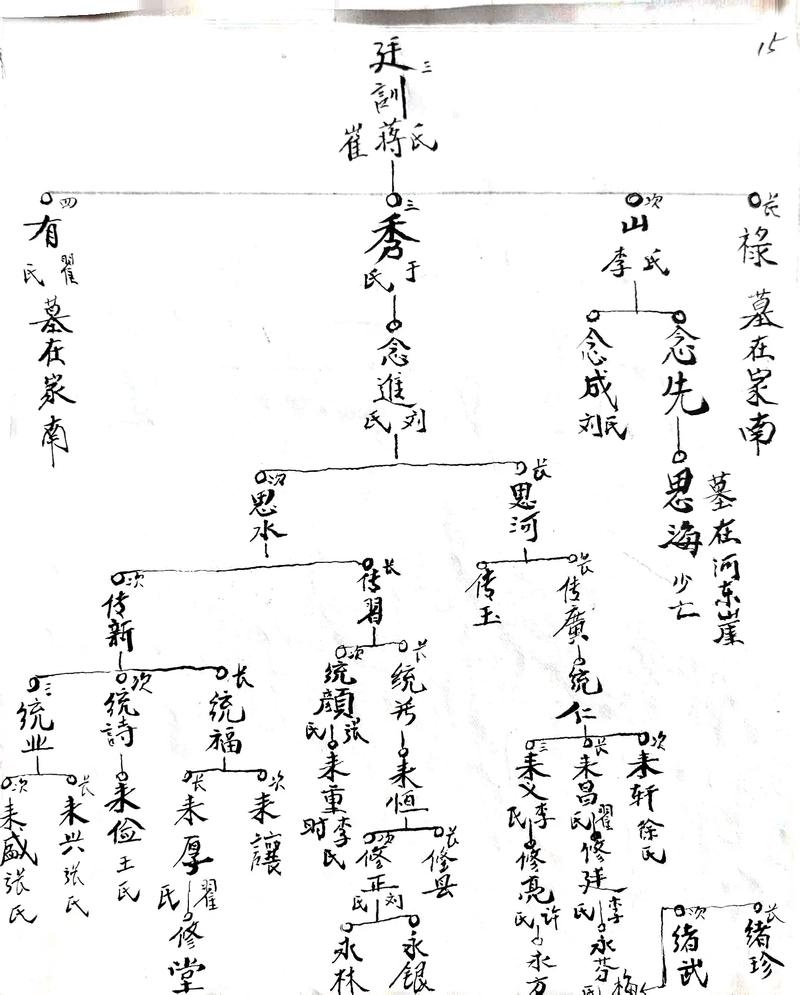 15
廷訓 三
崔 蒋氏
长 祿 墓在家南
次 山 李氏
三 秀 于氏
四 有 翟氏 墓在家南
念先
念成 刘氏
念進 刘氏
思海 少亡 墓在河东崖
长 思河
次 思水
长 传廣
传玉
长 传習
次 传新
统仁
长 统
次 统顔 张氏
长 统福
次 统詩
三 统业
次 来轩 徐氏
长 来昌 翟氏
三 来义 李氏
来恒
来重 李氏
次 来讓
长 来厚 翟氏
来俭 王氏
长 来兴 张氏
次 来盛 张氏
修廷 李氏
修亮 许氏
长 修县
次 修正 刘氏
修堂
长 绪珍
次 绪武
永芬 梅氏
永方
永银
永林